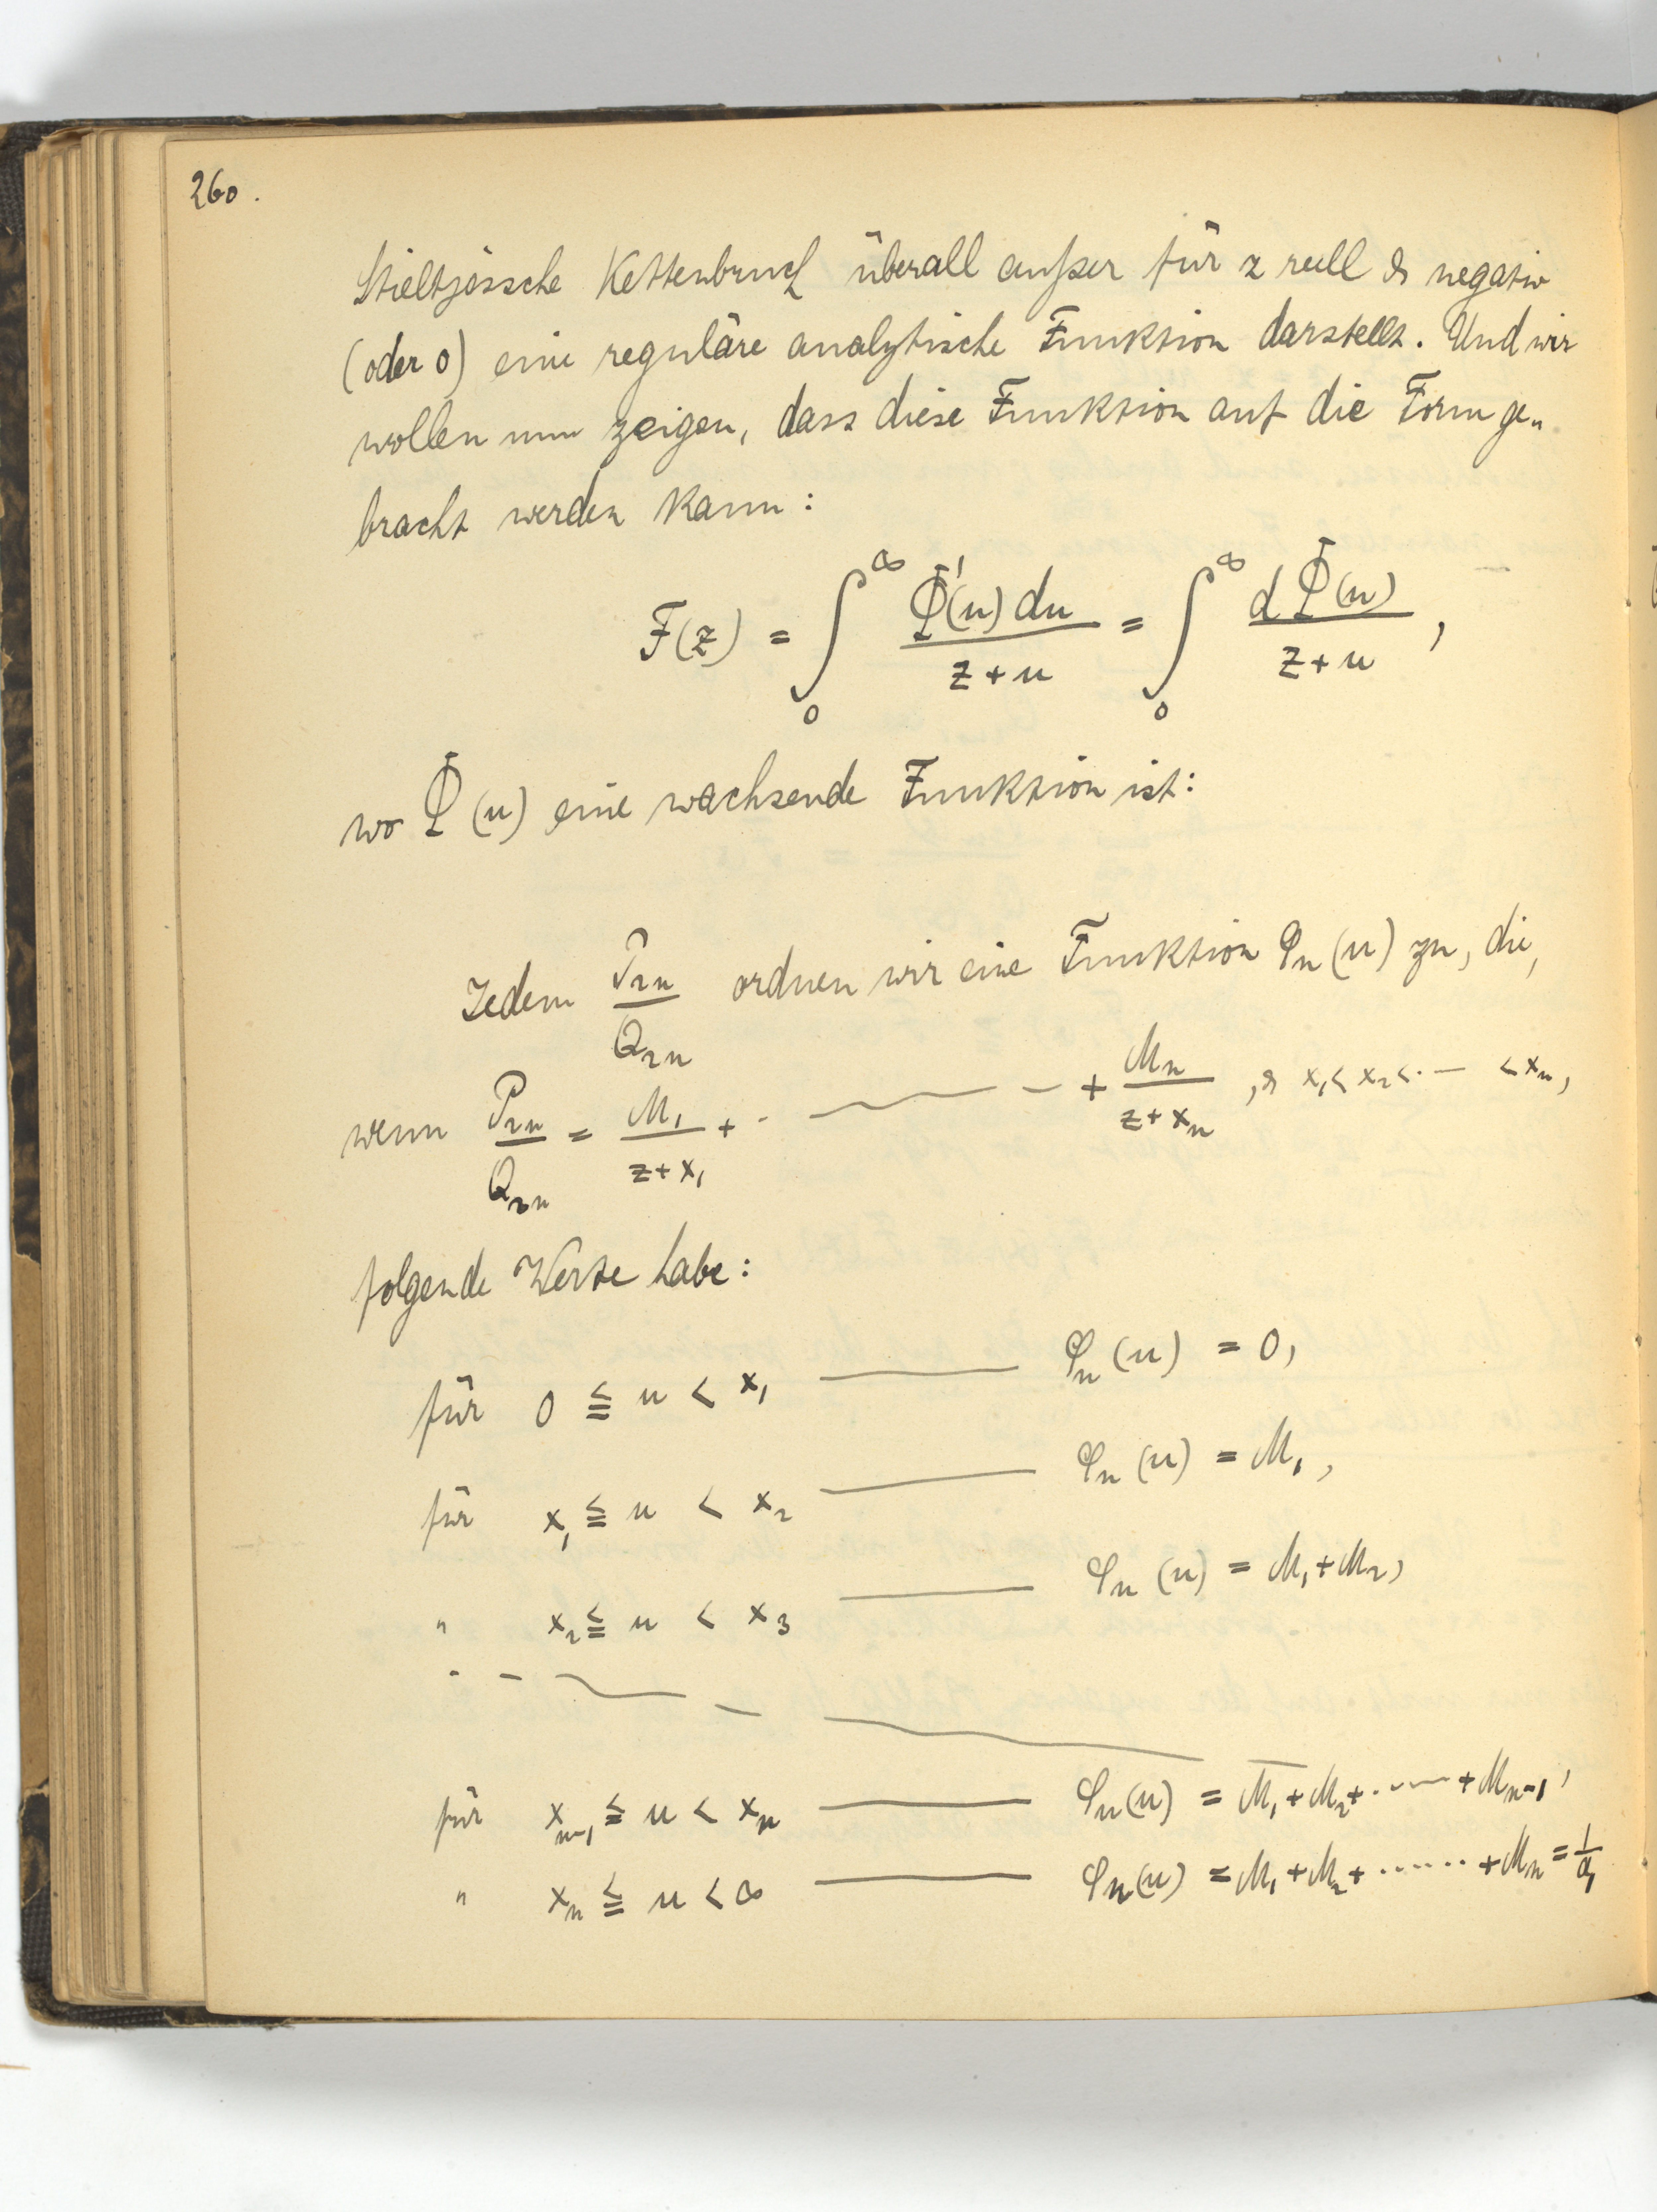 260.
Stieltjessche Kettenbruch überall außer für z reell & negativ
(oder 0) eine reguläre analytische Funktion darstellt. Und wir
wollen nun zeigen, dass diese Funktion auf die Form ge„
bracht werden kann:
F(z) = ∫₀^∞ Φ'(u) du / (z+u) = ∫₀^∞ dΦ(u) / (z+u) ,
wo Φ(u) eine wachsende Funktion ist:
Jedem P₂ₙ/Q₂ₙ ordnen wir eine Funktion φₙ(u) zu, die,
wenn P₂ₙ/Q₂ₙ = M₁/(z+x₁) + · — — + Mₙ/(z+xₙ) , & x₁ < x₂ < · — < xₙ,
folgende Werte habe:
für 0 ≦ u < x₁ —— φₙ(u) = 0,
für x₁ ≦ u < x₂ —— φₙ(u) = M₁,
" x₂ ≦ u < x₃ —— φₙ(u) = M₁+M₂,
· — — — — —
für xₙ₋₁ ≦ u < xₙ —— φₙ(u) = M₁+M₂+·–––+Mₙ₋₁,
" xₙ ≦ u < ∞ —— φₙ(u) = M₁+M₂+······+Mₙ = 1/a₁